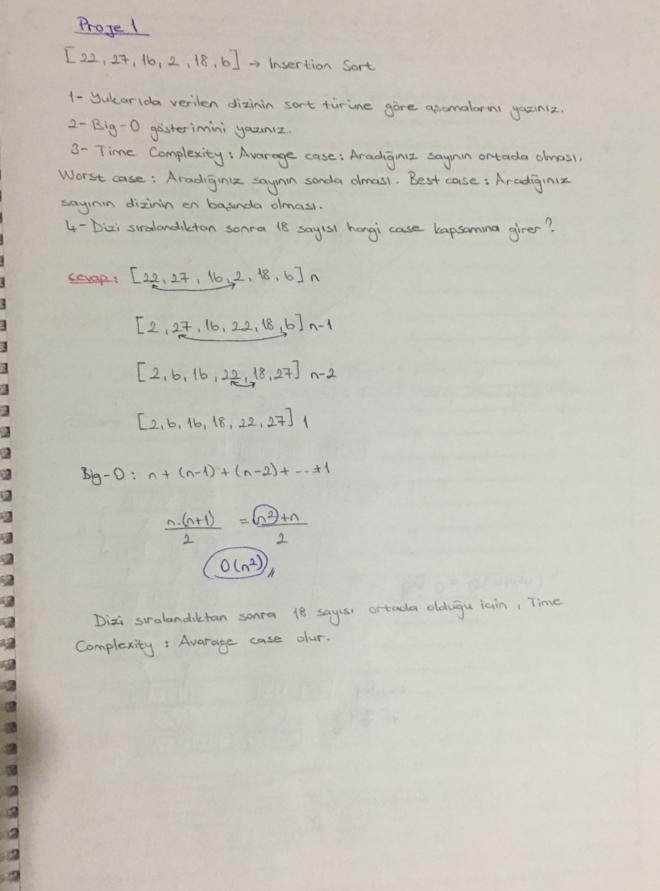 Proje 1
[22, 27, 16, 2, 18, 6] → Insertion Sort
1- Yukarıda verilen dizinin sort türüne göre aşamalarını yazınız.
2- Big-O gösterimini yazınız.
3- Time Complexity: Avarage case: Aradığınız sayının ortada olması,
Worst case: Aradığınız sayının sonda olması. Best case: Aradığınız
sayının dizinin en başında olması.
4- Dizi sıralandıktan sonra 18 sayısı hangi case kapsamına girer?
cevap: [22, 27, 16, 2, 18, 6] n
[2, 27, 16, 22, 18, 6] n-1
[2, 6, 16, 22, 18, 27] n-2
[2, 6, 16, 18, 22, 27] 1
Big-O: n + (n-1) + (n-2) + ... +1
n.(n+1) = n²+n
2 2
O(n²)
Dizi sıralandıktan sonra 18 sayısı ortada olduğu için, Time
Complexity: Avarage case olur.